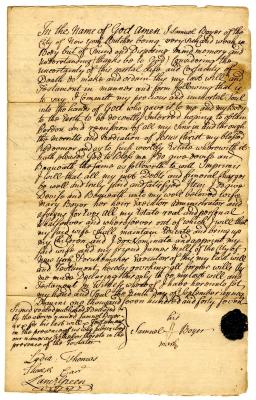 In the Name of God Amen. I Samuel Boyer of the
City of New york being very sick and weak in
Body but of Sound and Disposing mind memory and
understanding thanks be to God Considering the
uncertainty of this mortal life and certainty of
Death Do make and ordain this my last will and
Testament in manner and form following that is
to say I Commit my precious and immortal Soul
into the hands of God who gave it to me and my body
to the Earth to be decently Interred hoping to obtain
Pardon and remission of all my Sins and through
the merits and mediation of Jesus Christ my blessed
Redeemer and as to such worldly Estate wherewith it
hath pleased God to bless me I do give devise and
Bequeath the same as followeth to wit Imprimis
I will that all my just Debts and funeral Charges
be well and truly paid and satisfied Item I give
Devise and Bequeath unto my well beloved wife
Mary Boyer her heirs Executors administrators and
assigns for Ever all my Estate real and personal
whatsoever and wheresoever out of which I will that
my said wife shall maintain Educate and bring up
my Children and I do nominate and appoint my
said wife and my
New york Executor of this my last will
and Testament, hereby revoking all former wills by
me made Declaring this only to be my last will and
Testament In witness whereof I have hereunto set
my hand and Seal the Tenth day of September
Domini one thousand seven hundred and forty Seven
Signed sealed published & declared by
the above named Samuel Boyer
for his last will & Testament
in the presence of us who subscribed
our names as witnesses thereto in the
presence of the Testator
his
Samuel Boyer
mark
Lydia Thomas